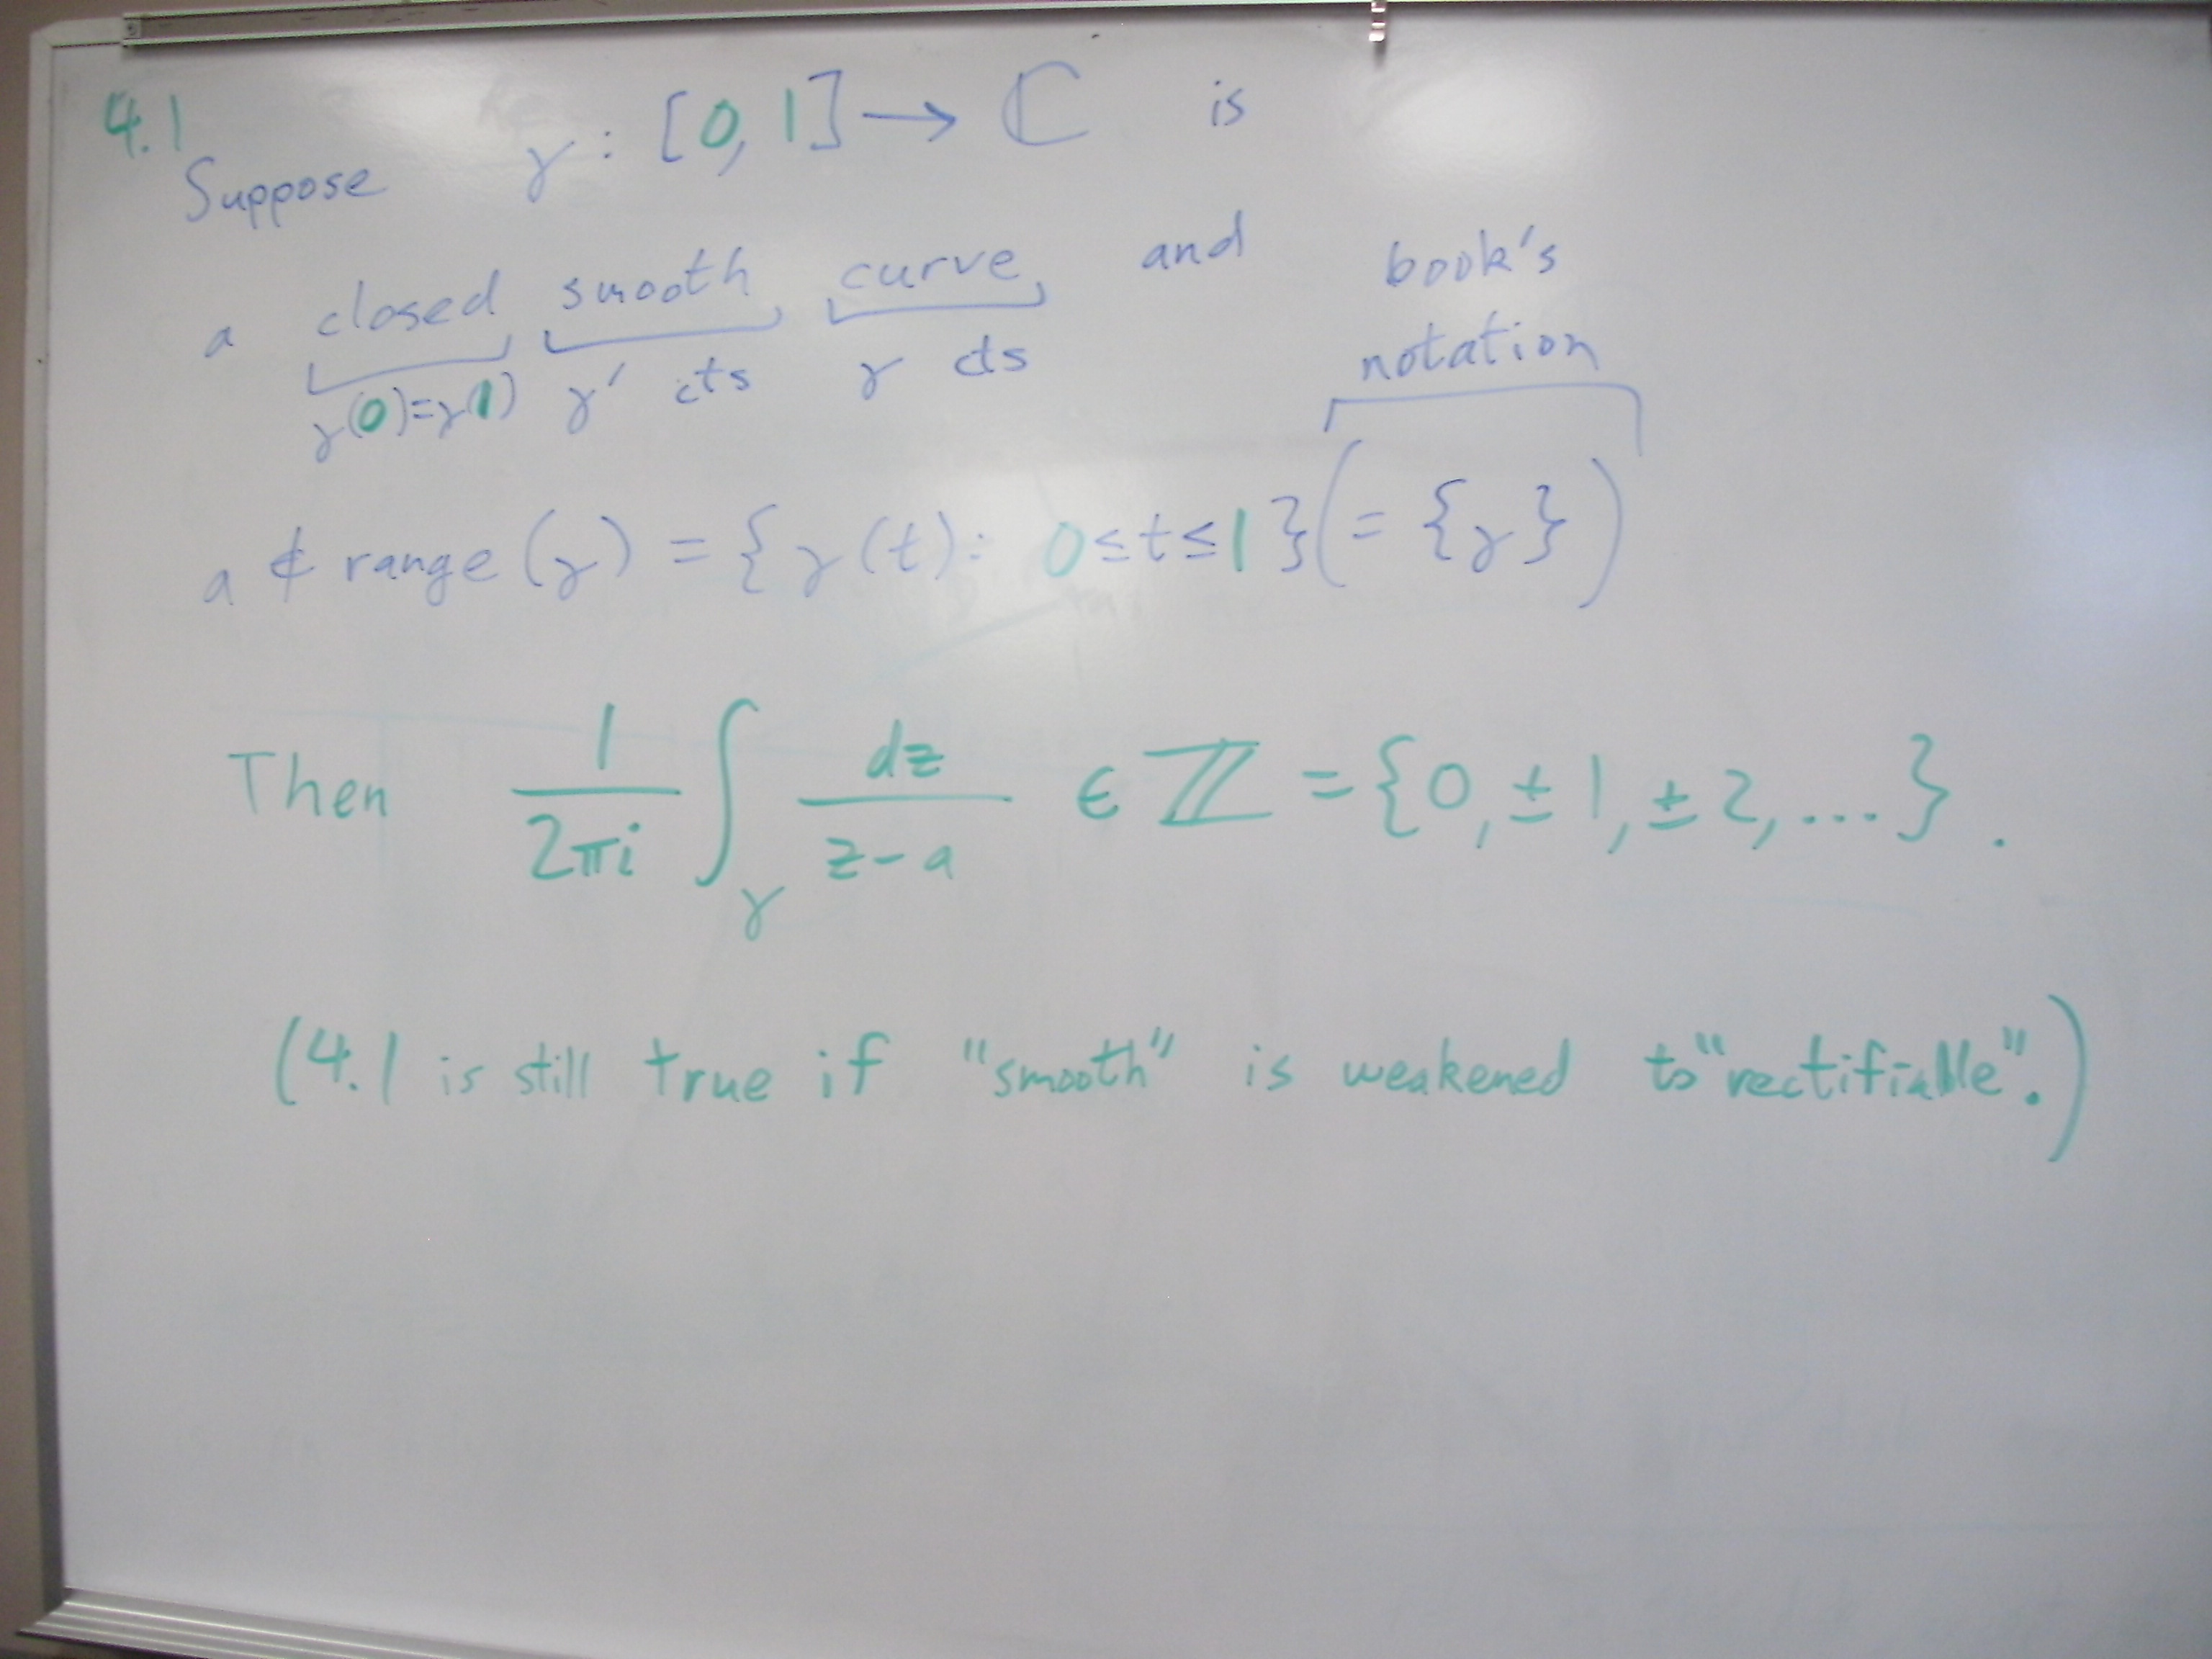 4.1
Suppose γ : [0, 1] → ℂ is
a closed smooth curve and
γ(0)=γ(1) γ' cts γ cts
book's
notation
a ∉ range (γ) = { γ (t) : 0 ≤ t ≤ 1 } (= {γ})
Then 1/2πi ∫_γ dz/z-a ∈ ℤ = {0, ± 1, ± 2, ... } .
(4.1 is still true if "smooth" is weakened to "rectifiable".)